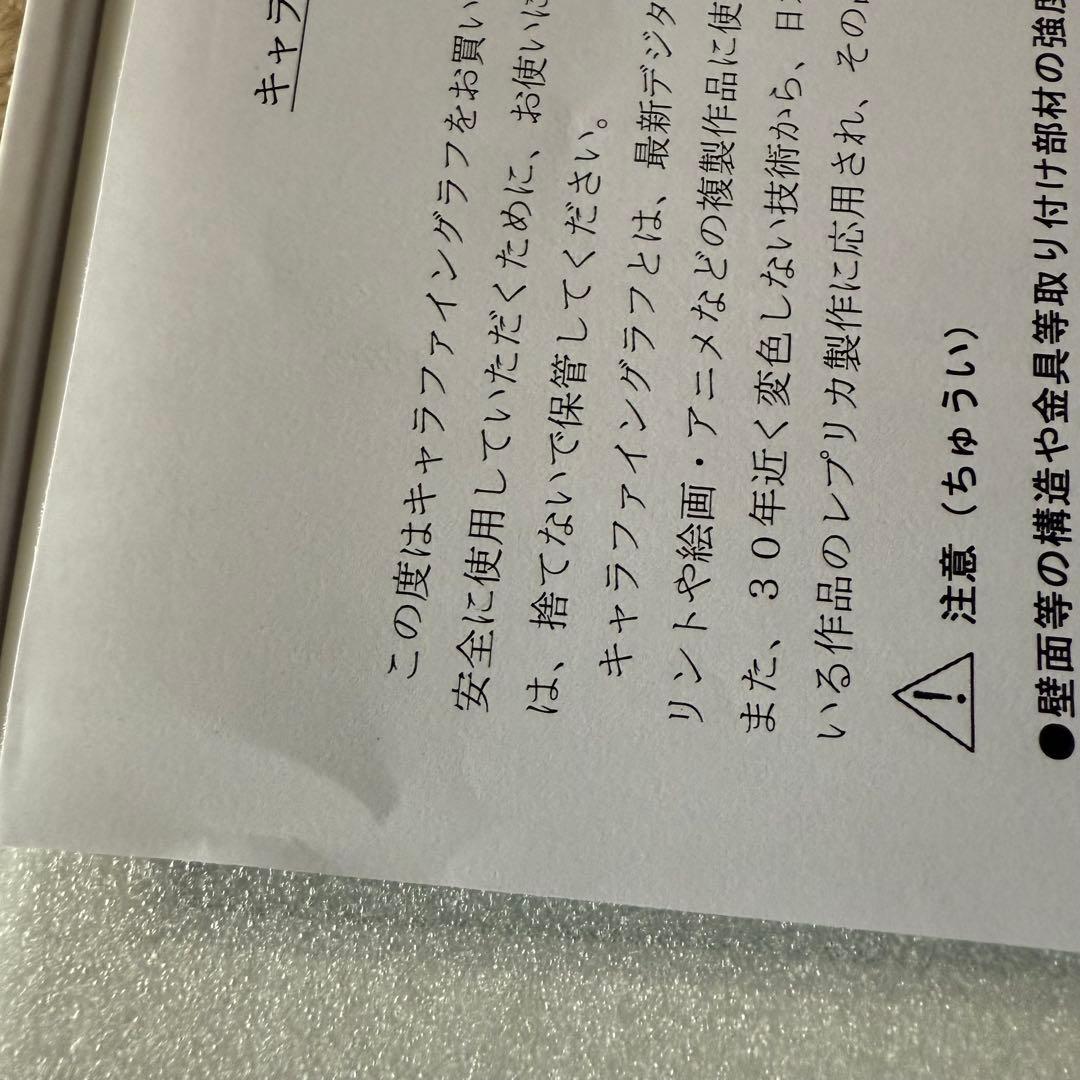 キャラ
この度はキャラファイングラフをお買い
安全に使用していただくために、お使いに
は、捨てないで保管してください。
キャラファイングラフとは、最新デジタ
リントや絵画・アニメなどの複製作品に使
また、３０年近く変色しない技術から、日
いる作品のレプリカ製作に応用され、その
注意（ちゅうい）
●壁面等の構造や金具等取り付け部材の強度